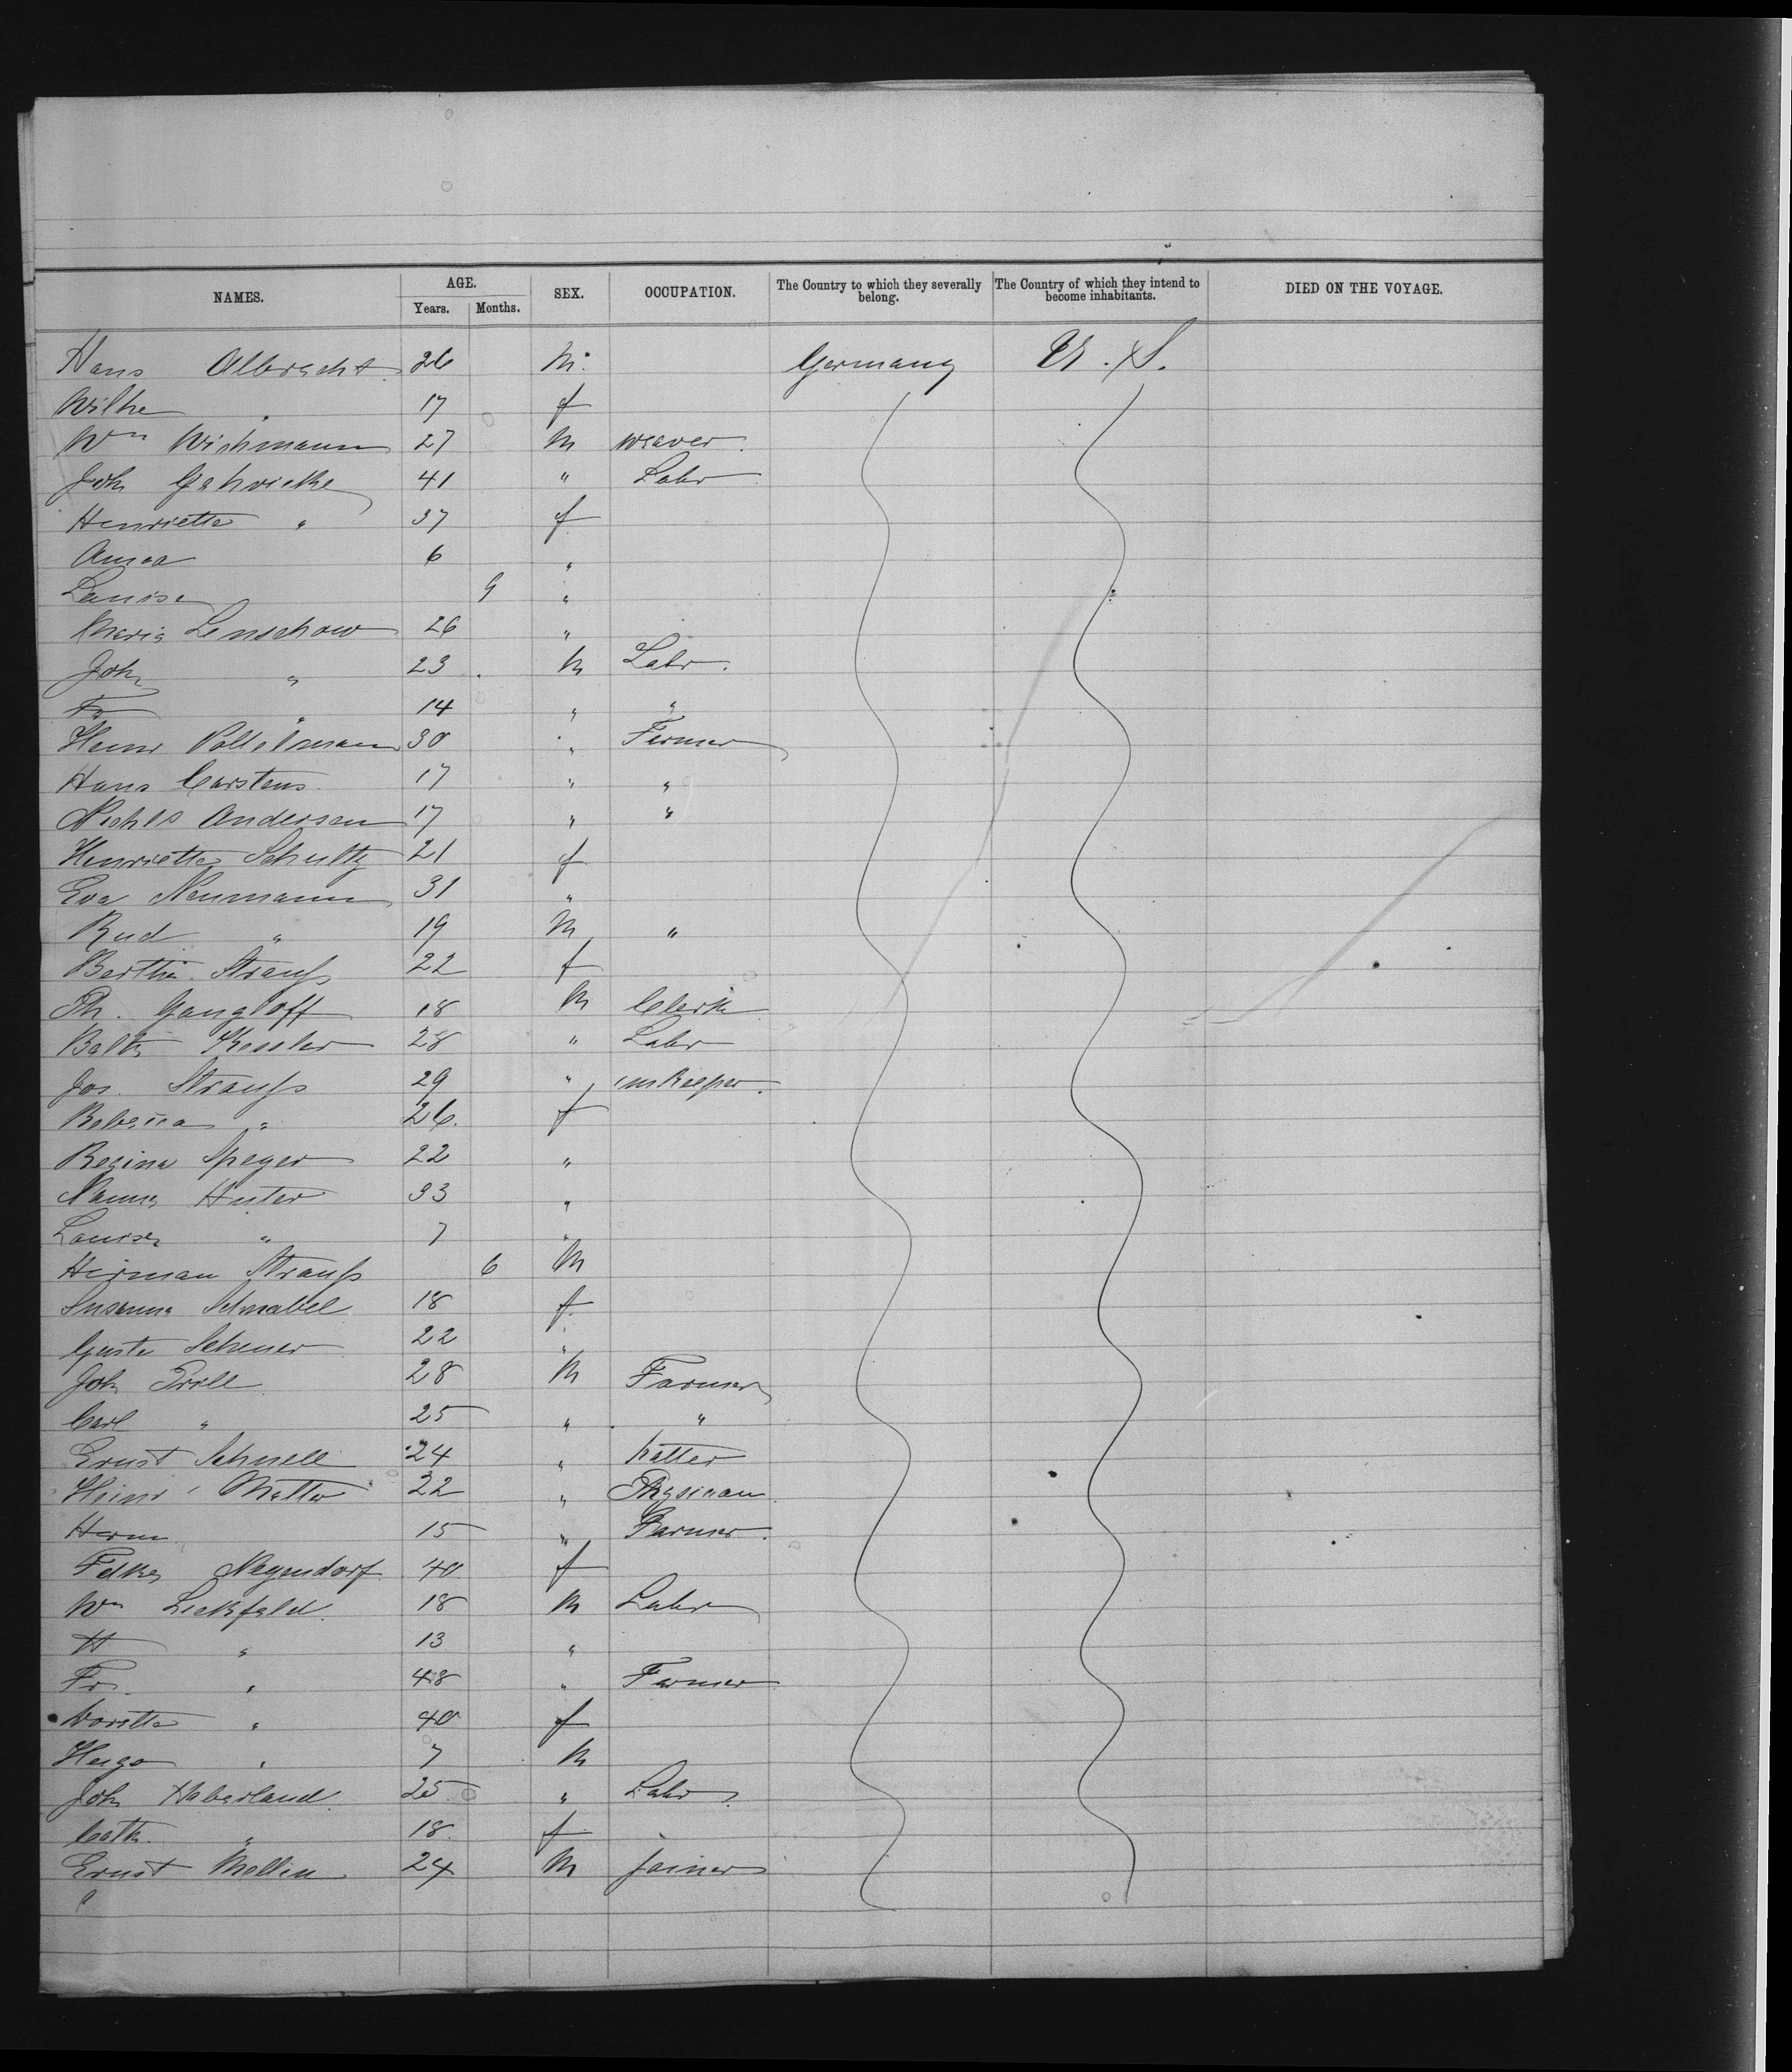 NAMES. AGE. Years. Months. SEX. OCCUPATION. The Country to which they severally belong. The Country of which they intend to become inhabitants. DIED ON THE VOYAGE.
Hans Albrecht 26 M. Germany U. S.
Wilhe " 17 f
Wm Wichmann 27 M weaver
Joh Gahwicke 41 " Labr
Henriette " 37 f
Anna 6 "
Louise 9 "
Maria Lenschow 26 "
Joh " 23 M Labr
Fr " 14 " "
Heinr 30 " Farmer
Hans Carstens 17 " "
Andersen 17 " "
Henriette Schultz 21 f
Eva Neumann 31 "
Rud " 19 M "
Bertha Strauß 22 f
Ph. Gangloff 18 M Clerk
Balth Kessler 28 " Labr
Jos. Strauß 29 " innkeeper
Rebecca " 26 f
Regina Speyer 22 "
Nanny Huter 33 "
Louise " 7 "
Herman Strauß 6 M
Susanna Schnabel 18 f
Guste Scheuer 22 "
Joh Grill 28 M Farmer
Carl " 25 " "
Ernst Schnell 24 " hatter
Heinr 22 " Physician
Herm 15 " Farmer
Negendorf 40 f
Wm Lickfeld 18 M Labr
H " 13 "
Fr. " 48 " Farmer
Dorette " 40 f
Hugo " 7 M
Joh Haberland 25 " Labr
Cath. " 18 f
Ernst Mellin 24 M joiner